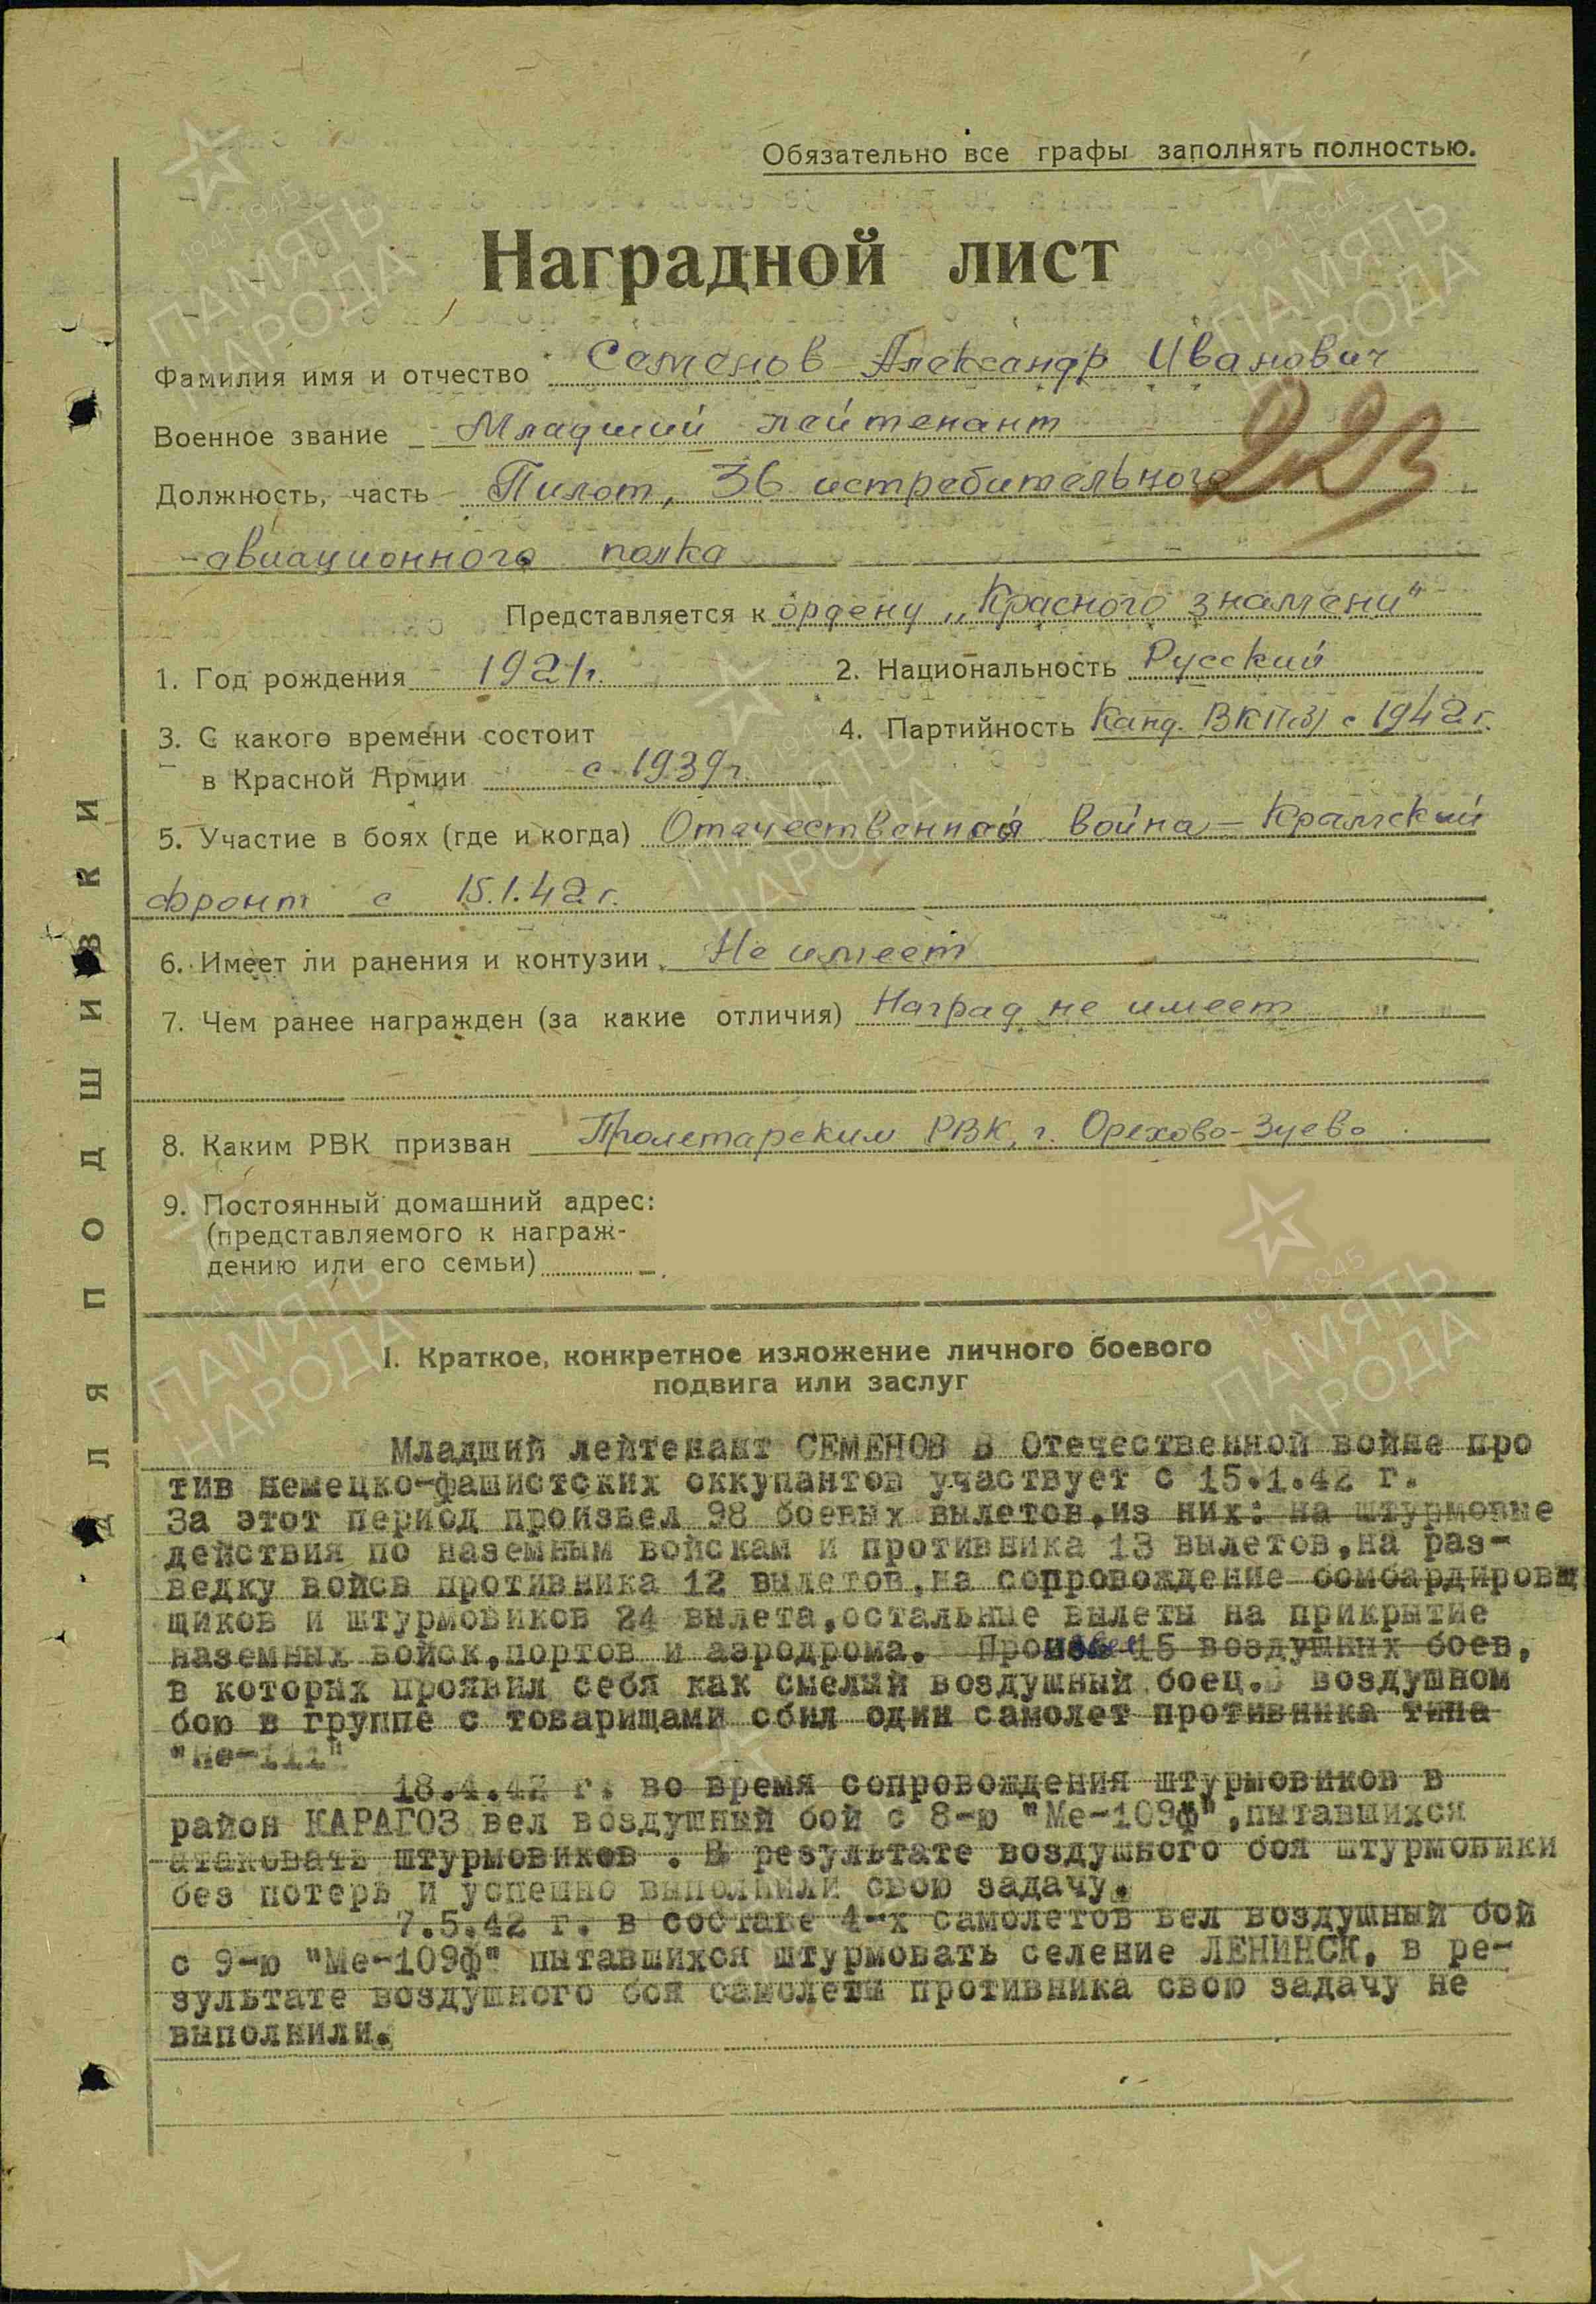 Обязательно все графы заполнять полностью.
Наградной лист
Фамилия имя и отчество Семенов Александр Иванович
Военное звание Младший лейтенант
Должность, часть Пилот, 36 истребительного
авиационного полка
223
Представляется к ордену „Красного знамени"
1. Год рождения 1921г. 2. Национальность Русский
3. С какого времени состоит 4. Партийность Канд. ВКП(б) с 1942г.
в Красной Армии с 1939г.
5. Участие в боях (где и когда) Отечественная война – Крымский
фронт с 15.1.42г.
6. Имеет ли ранения и контузии Не имеет
7. Чем ранее награжден (за какие отличия) Наград не имеет
8. Каким РВК призван Пролетарским РВК, г. Орехово-Зуево
9. Постоянный домашний адрес:
(представляемого к награж-
дению или его семьи)
I. Краткое, конкретное изложение личного боевого
подвига или заслуг
Младший лейтенант СЕМЕНОВ В Отечественной войне про
тив немецко-фашистских оккупантов участвует с 15.1.42 г.
За этот период произвел 98 боевых вылетов,из них: на штурмовые
действия по наземным войскам и противника 13 вылетов,на раз-
ведку войсв противника 12 вылетов,на сопровождение бомбардировщ
щиков и штурмовиков 24 вылета,остальные вылеты на прикрытие
наземных войск,портов и аэродрома. Провел 15 воздушных боев,
в которых проявил себя как смелый воздушный боец. В воздушном
бою в группе с товарищами сбил один самолет противника типа
"Не-111"
18.4.42 г. во время сопровождения штурмовиков в
район КАРАГОЗ вел воздушный бой с 8-ю "Ме-109ф",пытавшихся
атаковать штурмовиков . В результате воздушного боя штурмовики
без потерь и успешно выполнили свою задачу.
7.5.42 г. в составе 4-х самолетов вел воздушный бой
с 9-ю "Ме-109ф" пытавшихся штурмовать селение ЛЕНИНСК, в ре-
зультате воздушного боя самолеты противника свою задачу не
выполнили.
ДЛЯ ПОДШИВКИ
1941-1945
ПАМЯТЬ
НАРОДА